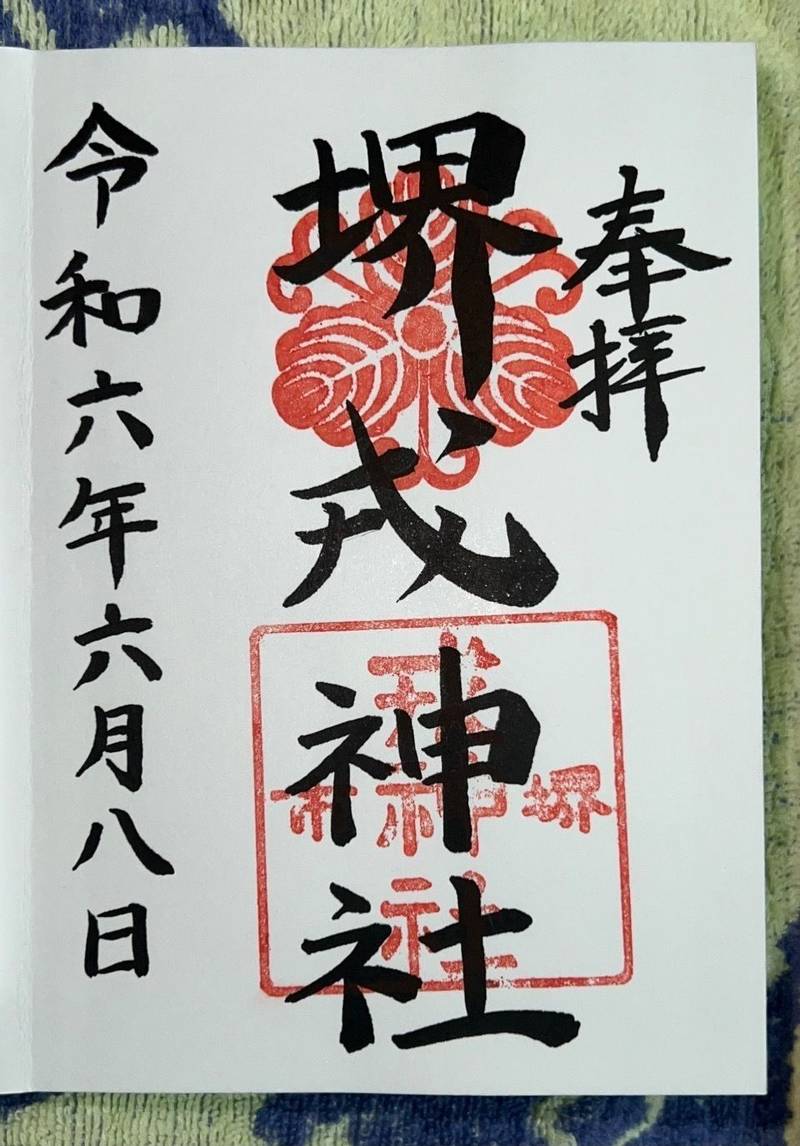 奉拝
堺戎神社
堺
市
神
社
令和六年六月八日